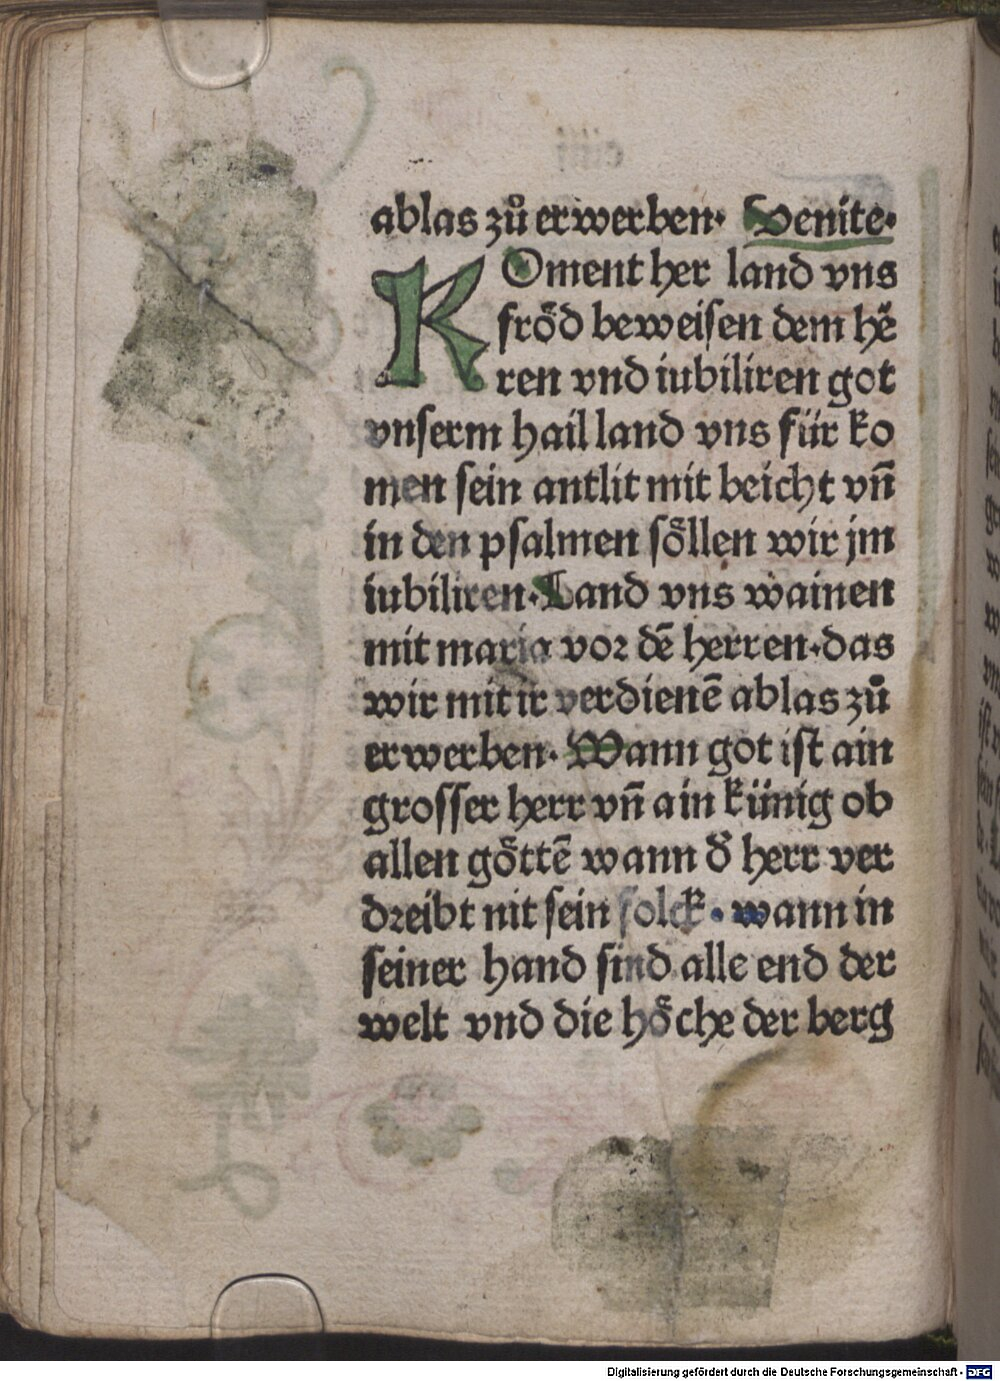 ablas zů erwerben· Venite·
KOment her land vns
frőd beweisen dem hē
ren vnd iubiliren got
vnserm hailland vns für ko
men sein antlit mit beicht vn̄
in den psalmen sőllen wir jm
iubiliren· Land vns wainen
mit maria vor dē herren·das
wir mit ir verdienē ablas zů
erwerben· Wann got ist ain
grosser herr vn̄ ain künig ob
allen gőttē wann d̕ herr ver
dreibt nit sein folck· wann in
seiner hand sind alle end der
welt vnd die hőche der berg
Digitalisierung gefördert durch die Deutsche Forschungsgemeinschaft - DFG